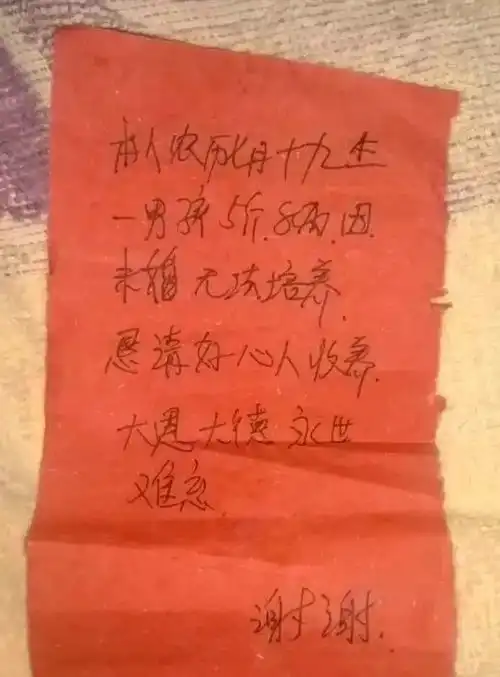 本人农历七月十九生
一男孩5斤.8两.因
未婚 无法培养.
恳请好心人收养.
大恩大德 永世
难忘
谢谢.